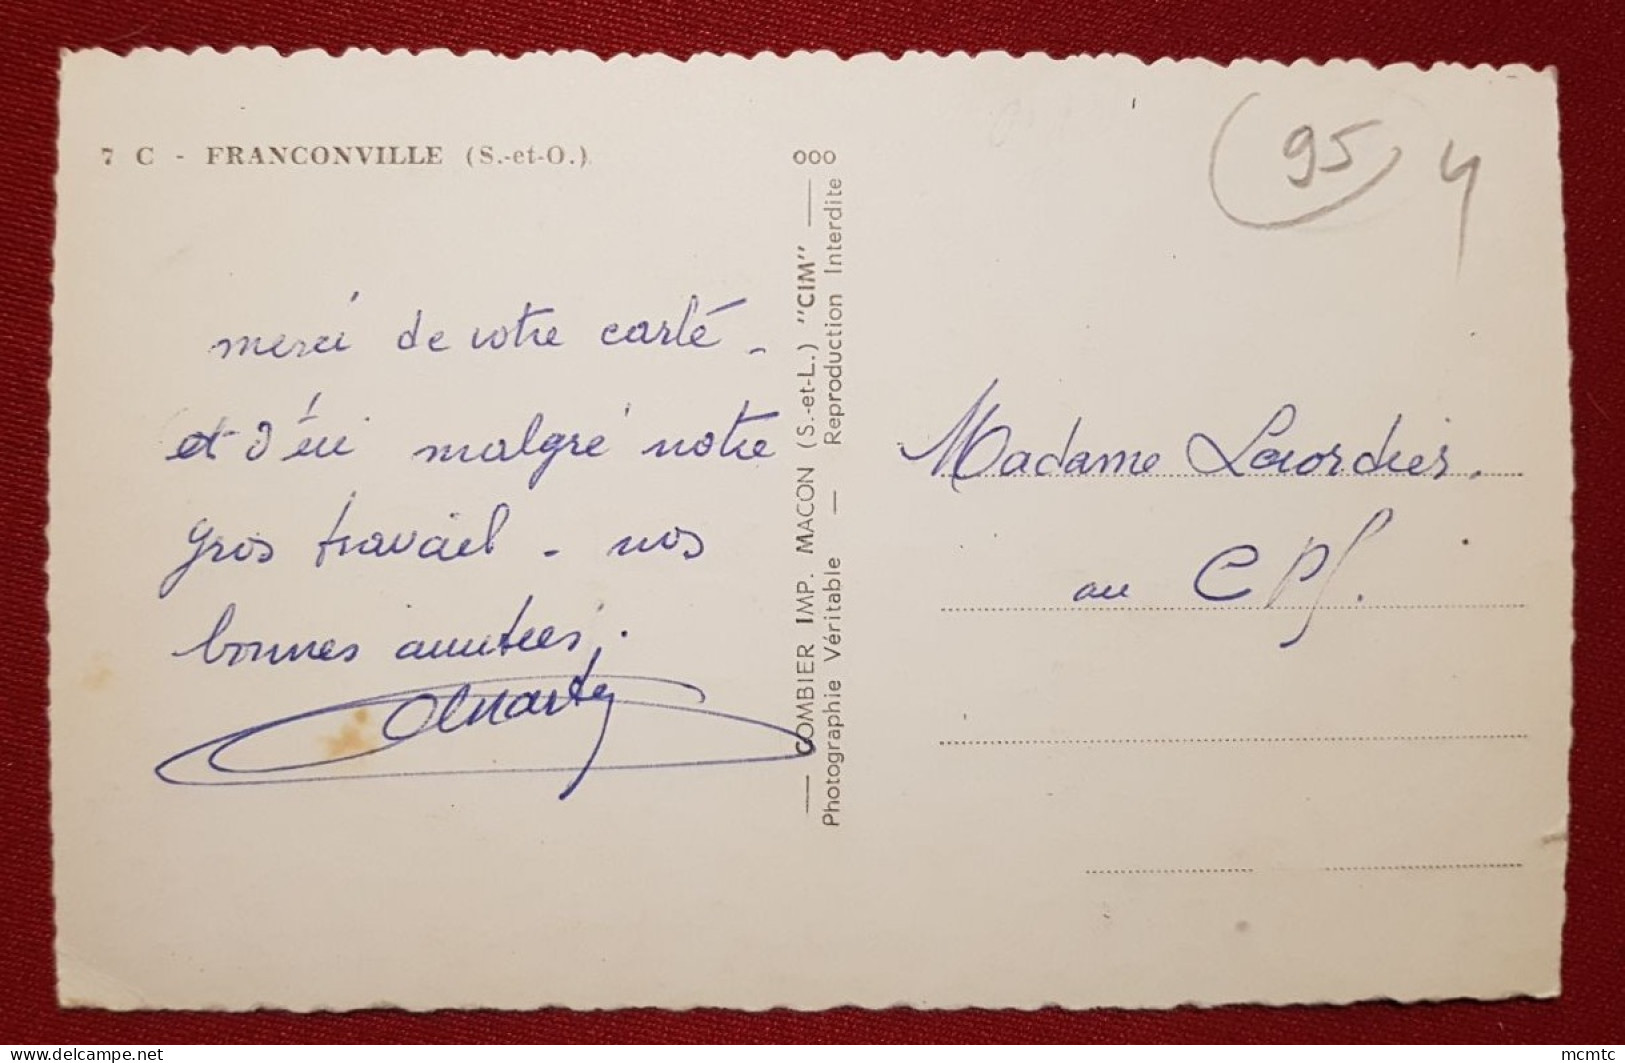 7 C - FRANCONVILLE (S.-et-O.)
merci de votre carté -
et d'ici malgré notre
gros travail - nos
bonnes amitiés.
ooo
— COMBIER IMP. MACON (S.-et-L.) "CIM" —
Photographie Véritable — Reproduction Interdite
95
4
Madame
au
delcampe.net
mcmtc